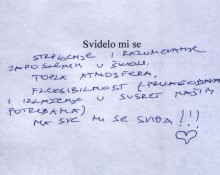 Svidelo mi se
STRPLJENJE I RAZUMEVANJE
ZAPOSLENIH U ŠKOLI.
TOPLA ATMOSFERA,
FLEKSIBILNOST (PRILAGOĐAVANJE
I IZLAŽENJE U SUSRET NAŠIM
POTREBAMA)
MA SVE MI SE SVIĐA!!!